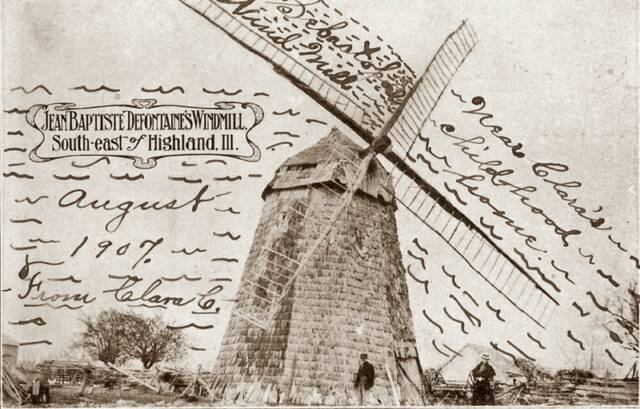 Wind Mill
JEAN BAPTISTE DEFONTAINE'S WINDMILL,
South-east of Highland, Ill.
Near Clara's
childhood
home.
August
1907.
From Clara C.